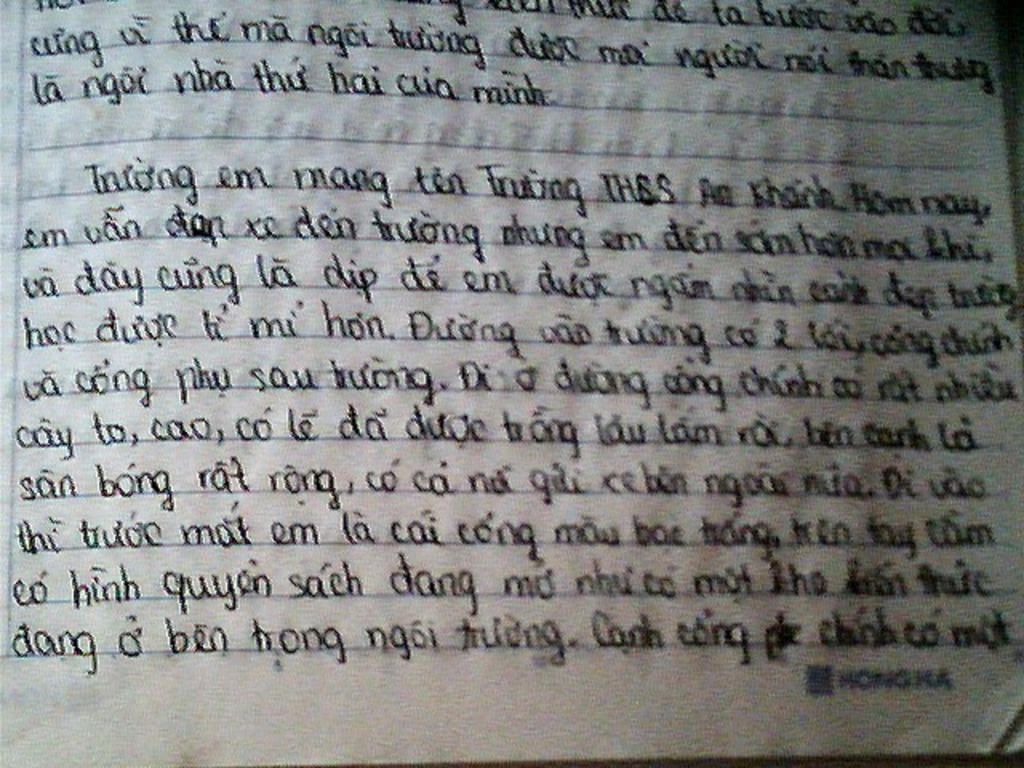 thức để ta bước vào đời,
cũng vì thế mà ngôi trường được mọi người nói thân thương
là ngôi nhà thứ hai của mình.
Trường em mang tên Trường THCS An Khánh. Hôm nay,
em vẫn đạp xe đến trường nhưng em đến sớm hơn mọi khi,
và đây cũng là dịp để em được ngắm nhìn cảnh đẹp trường
học được tỉ mỉ hơn. Đường vào trường có 2 lối, cổng chính
và cổng phụ sau trường. Đi ở đường cổng chính có rất nhiều
cây to, cao, có lẽ đã được trồng lâu lắm rồi, bên cạnh là
sân bóng rất rộng, có cả nơi gửi xe bên ngoài nữa. Đi vào
thì trước mắt em là cái cổng màu bạc trắng, trên tay cầm
có hình quyển sách đang mở như có một kho kiến thức
đang ở bên trong ngôi trường. Cạnh cổng chính có một
HONG HA